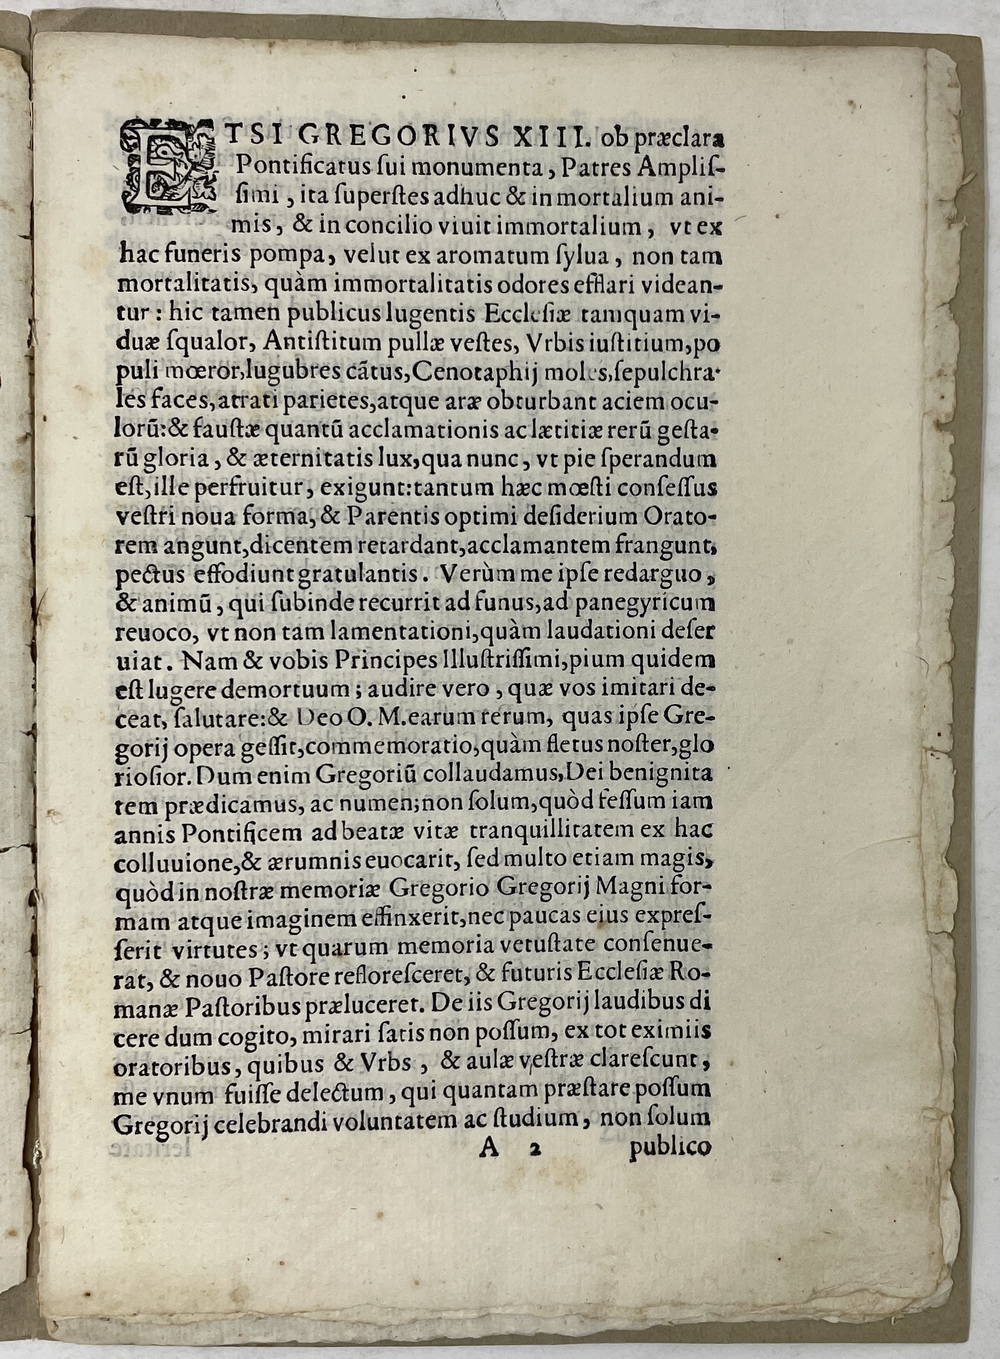 ETSI GREGORIVS XIII. ob præclara
Pontificatus ſui monumenta, Patres Ampliſ-
ſimi, ita ſuperſtes adhuc & in mortalium ani-
mis, & in concilio viuit immortalium, vt ex
hac funeris pompa, velut ex aromatum ſylua, non tam
mortalitatis, quàm immortalitatis odores efflari videan-
tur: hic tamen publicus lugentis Eccleſiæ tamquam vi-
duæ ſqualor, Antiſtitum pullæ veſtes, Vrbis iuſtitium, po
puli mœror, lugubres cãtus, Cenotaphij moles, ſepulchra-
les faces, atrati parietes, atque aræ obturbant aciem ocu-
lorũ: & fauſtæ quantũ acclamationis ac lætitiæ rerũ geſta-
rũ gloria, & æternitatis lux, qua nunc, vt pie ſperandum
eſt, ille perfruitur, exigunt: tantum hæc mœſti conſeſſus
veſtri noua forma, & Parentis optimi deſiderium Orato-
rem angunt, dicentem retardant, acclamantem frangunt,
pectus effodiunt gratulantis. Verùm me ipſe redarguo,
& animũ, qui ſubinde recurrit ad funus, ad panegyricum
reuoco, vt non tam lamentationi, quàm laudationi deſer
uiat. Nam & vobis Principes Illuſtriſſimi, pium quidem
eſt lugere demortuum; audire vero, quæ vos imitari de-
ceat, ſalutare: & Deo O. M. earum rerum, quas ipſe Gre-
gorij opera geſſit, commemoratio, quàm fletus noſter, glo
rioſior. Dum enim Gregoriũ collaudamus, Dei benignita
tem prædicamus, ac numen; non ſolum, quòd feſſum iam
annis Pontificem ad beatæ vitæ tranquillitatem ex hac
colluuione, & ærumnis euocarit, ſed multo etiam magis,
quòd in noſtræ memoriæ Gregorio Gregorij Magni for-
mam atque imaginem effinxerit, nec paucas eius expreſ-
ſerit virtutes; vt quarum memoria vetuſtate conſenue-
rat, & nouo Paſtore refloreſceret, & futuris Eccleſiæ Ro-
manæ Paſtoribus præluceret. De iis Gregorij laudibus di
cere dum cogito, mirari ſatis non poſſum, ex tot eximiis
oratoribus, quibus & Vrbs, & aulæ veſtræ clareſcunt,
me vnum fuiſſe delectum, qui quantam præſtare poſſum
Gregorij celebrandi voluntatem ac ſtudium, non ſolum
A 2 publico